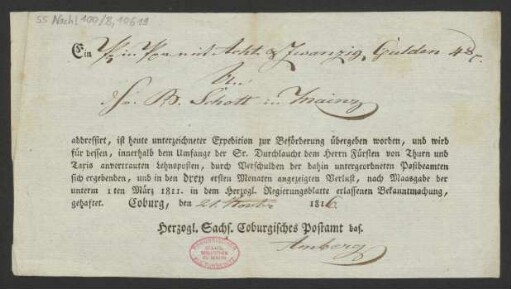 55 Nachl 100/B, 10611
Ein mit Acht & Zwanzig Gulden 48 x.
An
B. Schott in Mainz
addressirt, ist heute unterzeichneter Expedition zur Beförderung übergeben worden, und wird
für dessen, innerhalb dem Umfange der Sr. Durchlaucht dem Herrn Fürsten von Thurn und
Taxis anvertrauten Lehnsposten, durch Verschulden der dahin untergeordneten Postbeamten
sich ergebenden, und in den drey ersten Monaten angezeigten Verlust, nach Maasgabe der
unterm 1ten März 1811. in dem Herzogl. Regierungsblatte erlassenen Bekanntmachung,
gehaftet. Coburg, den 21. 1816
Herzogl. Sachs. Coburgisches Postamt das.
Amberg